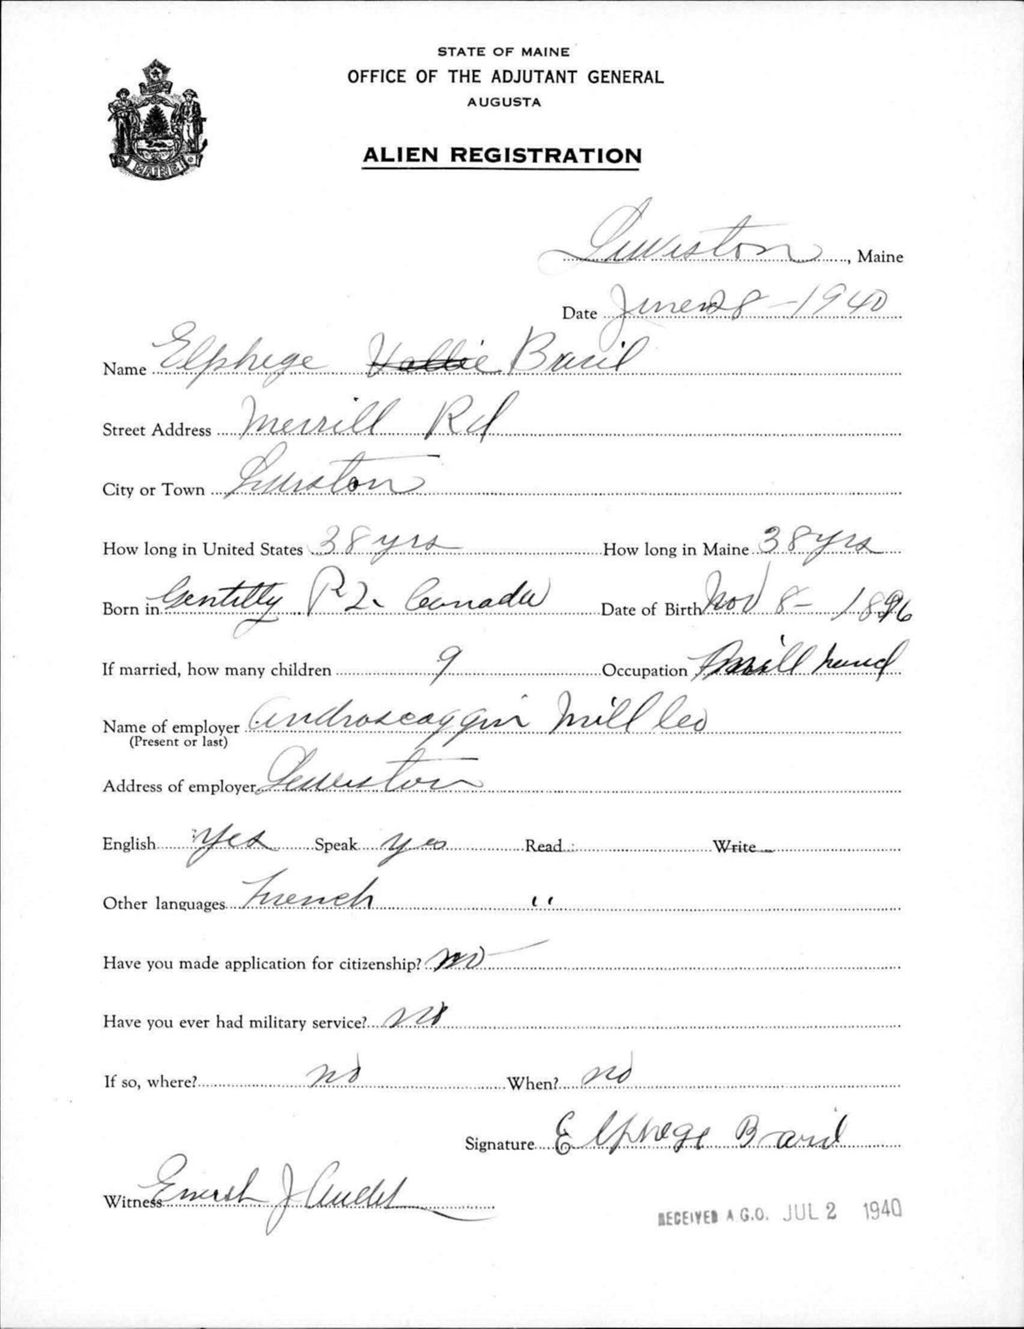 STATE OF MAINE
OFFICE OF THE ADJUTANT GENERAL
AUGUSTA
ALIEN REGISTRATION
MAINE
Lewiston, Maine
Date June 28-1940
Name Elphege Baril
Street Address Merrill Rd
City or Town Lewiston
How long in United States 38 yrs How long in Maine 38 yrs
Born in Gentilly P Q. Canada Date of Birth Nov 8- 1896
If married, how many children 9 Occupation Mill hand
Name of employer Androscoggin Mill Co
(Present or last)
Address of employer Lewiston
English Yes Speak yes Read Write
Other languages French "
Have you made application for citizenship? no
Have you ever had military service? no
If so, where? no When? no
Signature Elphege Baril
Witness J Audet
RECEIVED A.G.O. JUL 2 1940